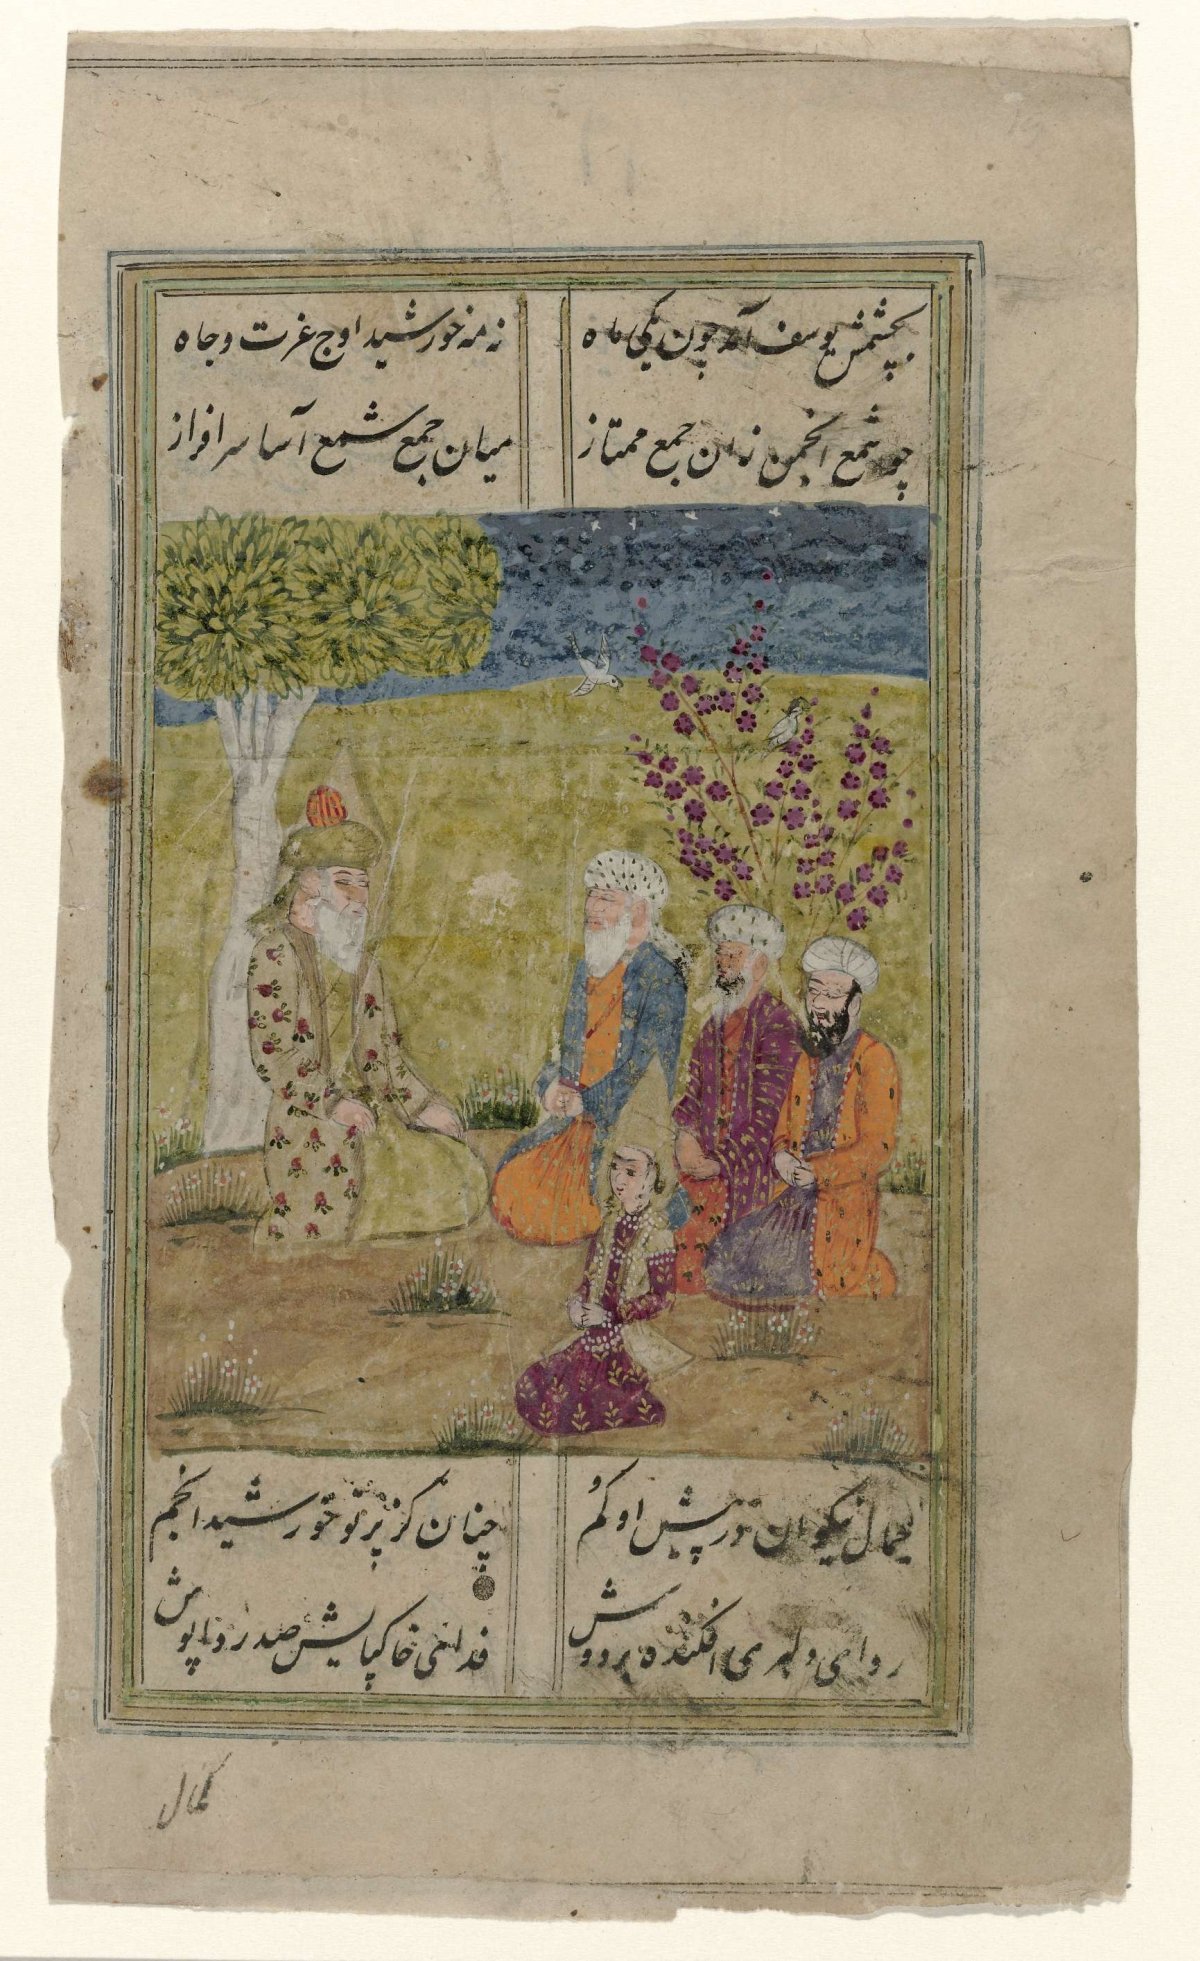 بچشمش یوسف آمد چون یکی ماه
نه مه خورشید اوج عزت و جاه
چو شمع انجمن زان جمع ممتاز
میان جمع شمع آسا سر افراز
جمال نیکوان در پیش او گم
چنان کز پرتو خورشید انجم
ردای دلبری افکنده بر دوش
فدای خاکپایش صد ردا پوش
کمال